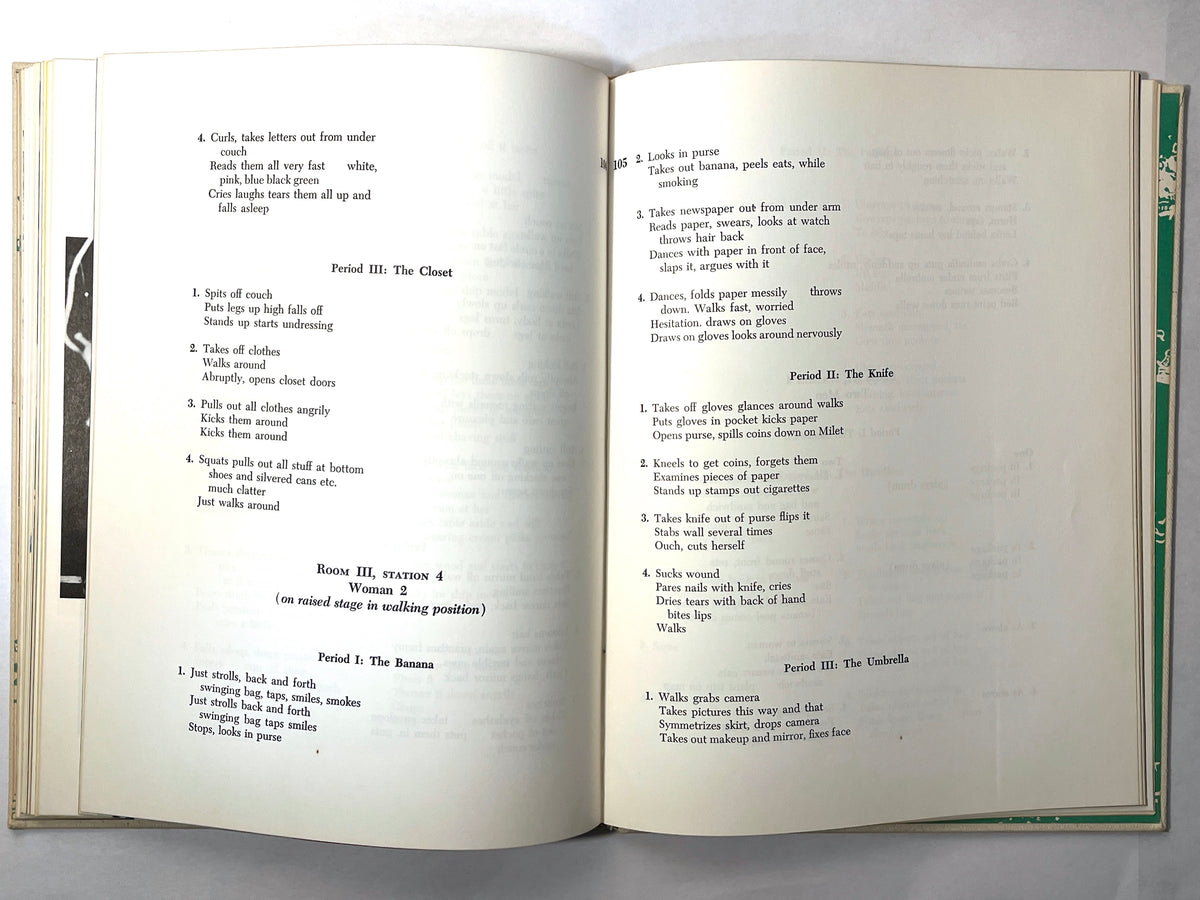 4. Curls, takes letters out from under
couch
Reads them all very fast white,
pink, blue black green
Cries laughs tears them all up and
falls asleep
Period III: The Closet
1. Spits off couch
Puts legs up high falls off
Stands up starts undressing
2. Takes off clothes
Walks around
Abruptly, opens closet doors
3. Pulls out all clothes angrily
Kicks them around
Kicks them around
4. Squats pulls out all stuff at bottom
shoes and silvered cans etc.
much clatter
Just walks around
ROOM III, STATION 4
Woman 2
(on raised stage in walking position)
Period I: The Banana
1. Just strolls, back and forth
swinging bag, taps, smiles, smokes
Just strolls back and forth
swinging bag taps smiles
Stops, looks in purse
105
2. Looks in purse
Takes out banana, peels eats, while
smoking
3. Takes newspaper out from under arm
Reads paper, swears, looks at watch
throws hair back
Dances with paper in front of face,
slaps it, argues with it
4. Dances, folds paper messily throws
down. Walks fast, worried
Hesitation. draws on gloves
Draws on gloves looks around nervously
Period II: The Knife
1. Takes off gloves glances around walks
Puts gloves in pocket kicks paper
Opens purse, spills coins down on Milet
2. Kneels to get coins, forgets them
Examines pieces of paper
Stands up stamps out cigarettes
3. Takes knife out of purse flips it
Stabs wall several times
Ouch, cuts herself
4. Sucks wound
Pares nails with knife, cries
Dries tears with back of hand
bites lips
Walks
Period III: The Umbrella
1. Walks grabs camera
Takes pictures this way and that
Symmetrizes skirt, drops camera
Takes out makeup and mirror, fixes face